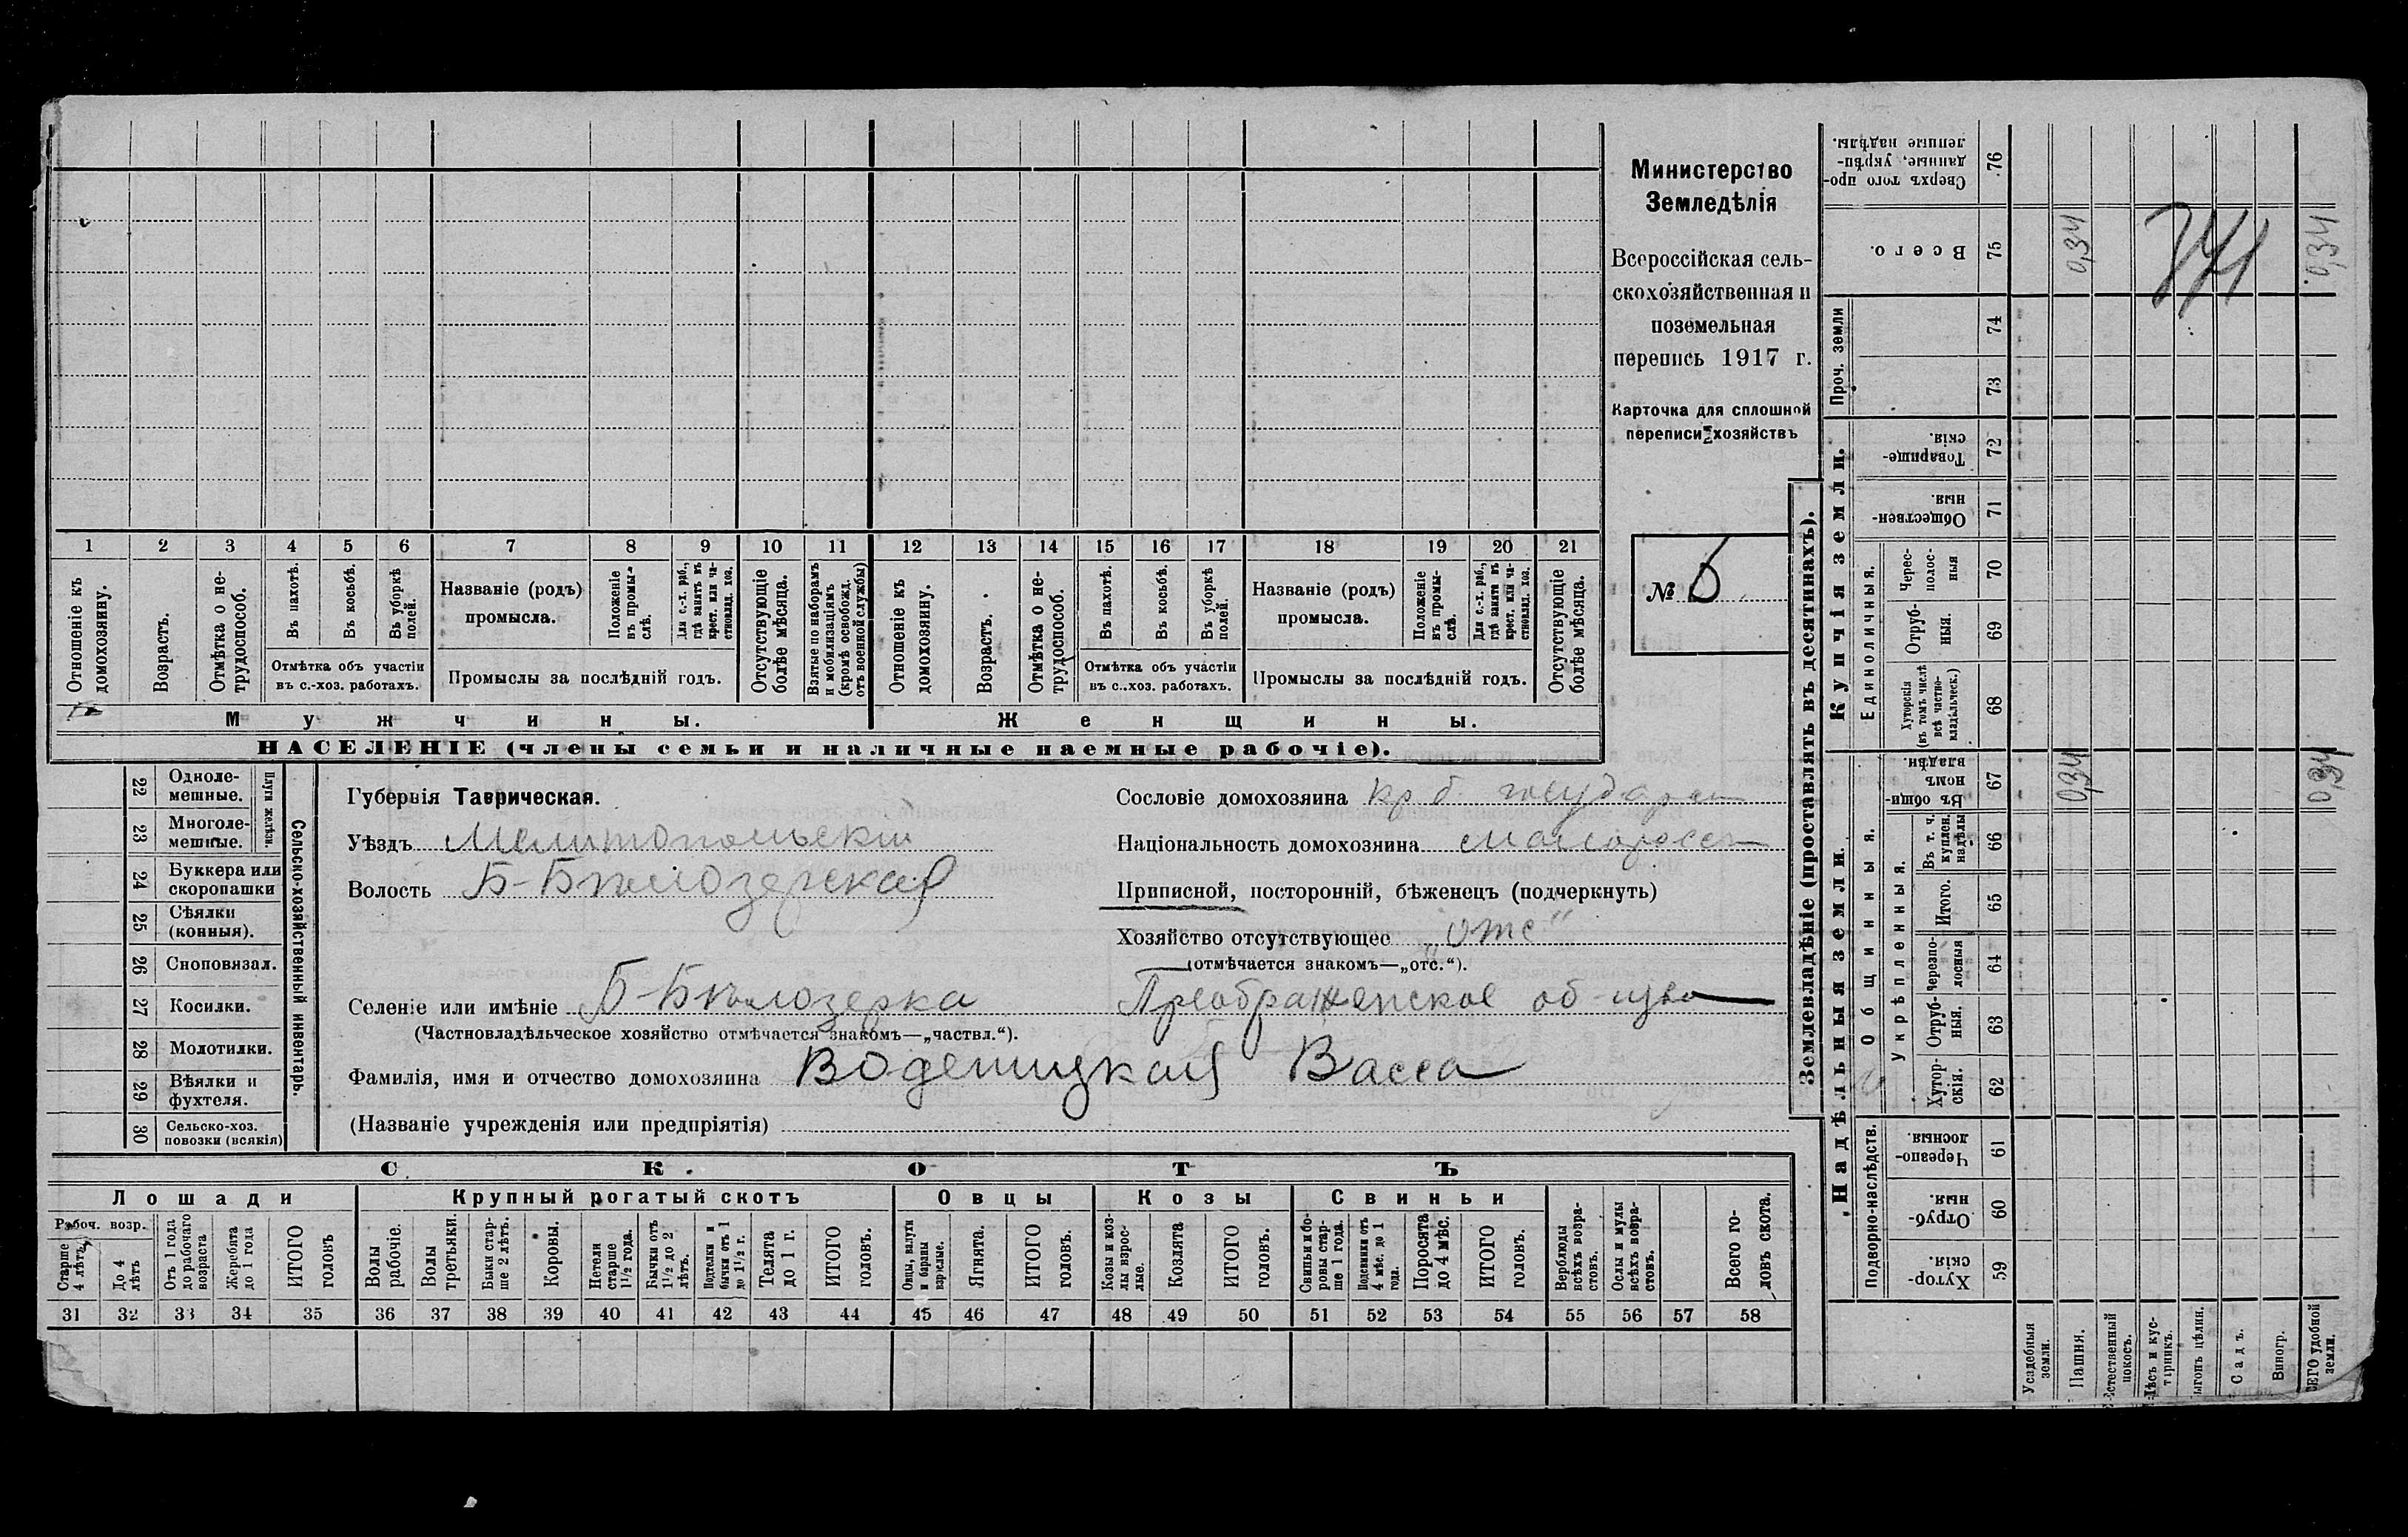 Министерство
Земледѣлія
Всероссійская сель-
скохозяйственная и
поземельная
перепись 1917 г.
Карточка для сплошной
переписи хозяйствъ
№ 6
1 2 3 4 5 6 7 8 9 10 11 12 13 14 15 16 17 18 19 20 21
Отношеніе къ домохозяину.
Возрастъ.
Отмѣтка о не-трудоспособ.
Въ пахотѣ.
Въ косьбѣ.
Въ уборкѣ полей.
Отмѣтка объ участіи
въ с.-хоз. работахъ.
Названіе (родъ)
промысла.
Положеніе въ промы-слѣ.
Для с.-х. раб., гдѣ занятъ въ крест. или ча-стновлад. хоз.
Промыслы за послѣдній годъ.
Отсутствующіе болѣе мѣсяца.
Взятые по наборамъ и мобилизаціямъ (кромѣ освобожд. отъ военной службы)
Отношеніе къ домохозяину.
Возрастъ.
Отмѣтка о не-трудоспособ.
Въ пахотѣ.
Въ косьбѣ.
Въ уборкѣ полей.
Отмѣтка объ участіи
въ с.-хоз. работахъ.
Названіе (родъ)
промысла.
Положеніе въ промы-слѣ.
Для с.-х. раб., гдѣ занята въ крест. или ча-стновлад. хоз.
Промыслы за послѣдній годъ.
Отсутствующіе болѣе мѣсяца.
Мужчины.
Женщины.
НАСЕЛЕНІЕ (члены семьи и наличные наемные рабочіе).
22 Одноле-мешные.
23 Многоле-мешные.
Плуги желѣзн.
24 Буккера или скоропашки
25 Сѣялки (конныя).
26 Сноповязал.
27 Косилки.
28 Молотилки.
29 Вѣялки и фухтеля.
30 Сельско-хоз. повозки (всякія)
Сельско-хозяйственный инвентарь.
Губернія Таврическая.
Уѣздъ Мелитопольскій
Волость Б-Бѣлозерская
Селеніе или имѣніе Б-Бѣлозерка
(Частновладѣльческое хозяйство отмѣчается знакомъ—„частвл.“).
Сословіе домохозяина кр б. государст
Національность домохозяина малоросс
Приписной, посторонній, бѣженецъ (подчеркнуть)
Хозяйство отсутствующее „отс“
(отмѣчается знакомъ—„отс.“).
Преображенское об-щво
Фамилія, имя и отчество домохозяина Водяницкая Васса
(Названіе учрежденія или предпріятія)
СКОТЪ
Лошади
Крупный рогатый скотъ
Овцы
Козы
Свиньи
Рабоч. возр.
Старше 4 лѣтъ
До 4 лѣтъ
Отъ 1 года до рабочаго возраста
Жеребята до 1 года
ИТОГО головъ
Волы рабочіе.
Волы третьяки.
Быки стар-ше 2 лѣтъ.
Коровы.
Нетели старше 1½ года.
Бычки отъ 1½ до 2 лѣтъ.
Подтелки и бычки отъ 1 до 1½ г.
Телята до 1 г.
ИТОГО головъ.
Овцы, валухи и бараны взрослые.
Ягнята.
ИТОГО головъ.
Козы и коз-лы взрос-лые.
Козлята
ИТОГО головъ.
Свиньи и бо-ровы стар-ше 1 года.
Подсвинки отъ 4 мѣс. до 1 года.
Поросята до 4 мѣс.
ИТОГО головъ.
Верблюды всѣхъ возра-стовъ.
Ослы и мулы всѣхъ возра-стовъ.
Всего го-ловъ скота.
31 32 33 34 35 36 37 38 39 40 41 42 43 44 45 46 47 48 49 50 51 52 53 54 55 56 57 58
Землевладѣніе (проставлять въ десятинахъ).
Надѣльныя земли.
Купчія земли.
Проч. земли
Подворно-наслѣдств.
Общинныя.
Укрѣпленныя.
Единоличныя.
Хутор-скія. 59
Отруб-ныя. 60
Черезпо-лосныя. 61
Хутор-скія. 62
Отруб-ныя. 63
Черезпо-лосныя 64
Итого. 65
Въ т. ч. куплен. надѣлы 66
Въ общи-номъ владѣн. 67
Хуторскія (въ томъ числѣ всѣ частно-владѣльческ.) 68
Отруб-ныя. 69
Черес-полос-ныя 70
Обществен-ныя. 71
Товарище-скія. 72
73
74
Всего. 75
Сверхъ того про-данные, укрѣп-ленные надѣлы. 76
Усадебныя земли.
Пашня.
0,34 0,34
Естественный покосъ.
Лѣсъ и кус-тарникъ.
ыгонъ цѣлин.
Садъ.
Виногр.
СЕГО удобной земли.
0,34 0,34